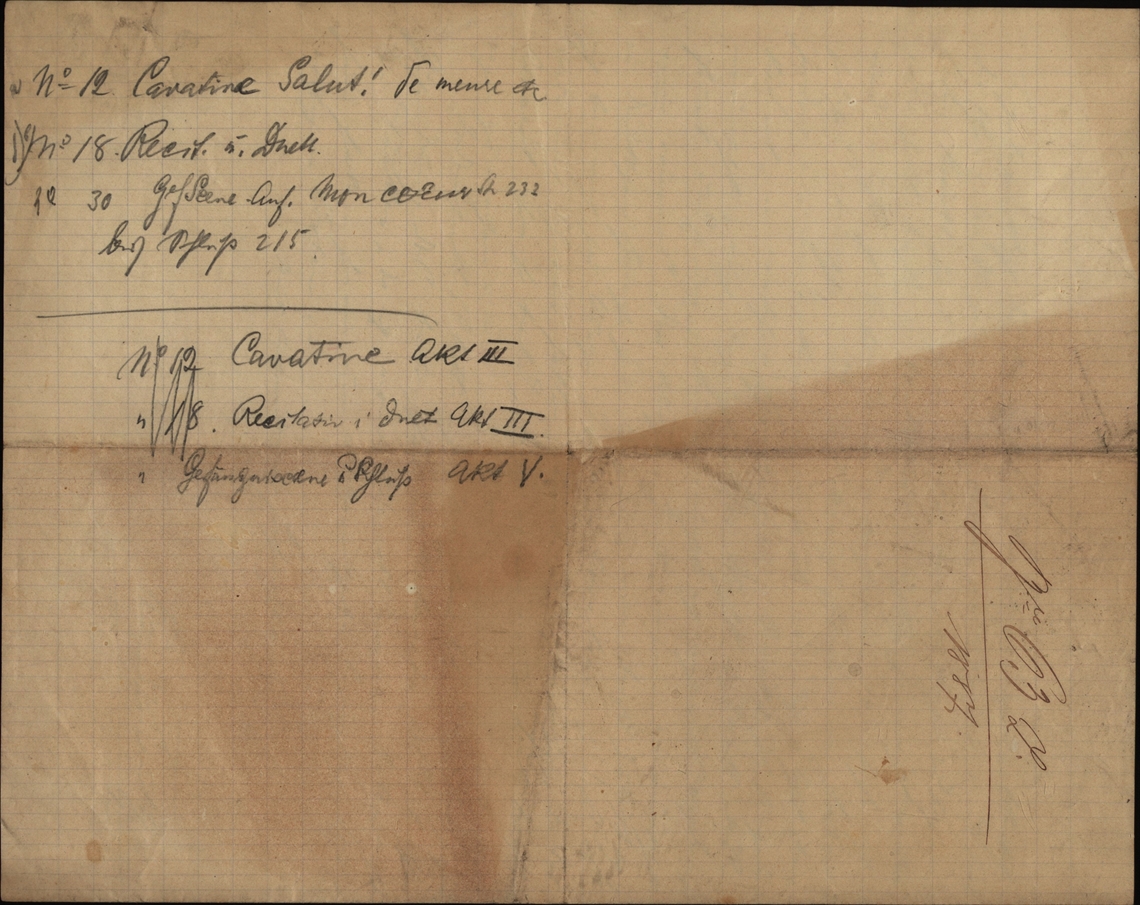 No 12 Cavatine Salut! de meure etc
No 18. Recit. u. Duett.
30 Gef Scene Anf. Mon coeur 232
bis Schluß 215
No 12 Cavatine Akt III
" 18. Recitativ u Duet Akt III.
" Gefängnisscene u Schluß Akt V.
No 63
1887.